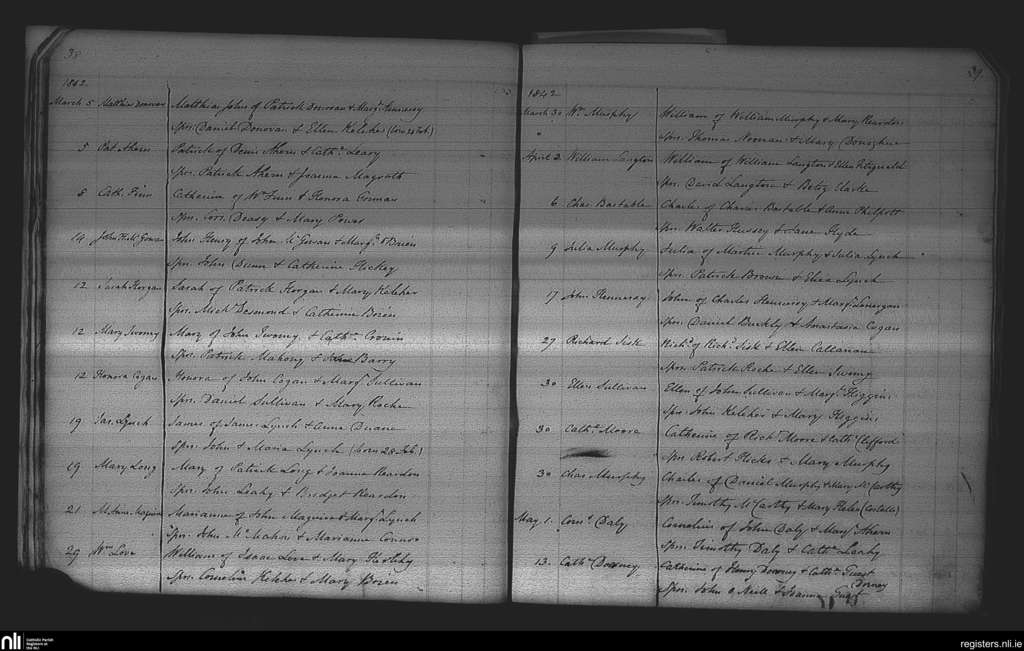 38
1842
March 5 Matthias Donovan Matthias John of Patrick Donovan & Margt Hennessy
Spr. Daniel Donovan & Ellen Keleher (born 24 Feb.)
5 Pat Ahern Patrick of Denis Ahern & Cathe Leary
Spr. Patrick Ahern & Joanna Magrath
6 Cath. Finn Catherine of Wm Finn & Honora Gorman
Spr. Corn. Deasy & Mary Power
John Henry of John McGowan & Margt O'Brien
Spr. John Dunn & Catherine Hickey
12 Sarah Horgan Sarah of Patrick Horgan & Mary Keleher
Spr. Michl Desmond & Catherine Brien
12 Mary Twomy Mary of John Twomy & Cathe Cronin
Spr. Patrick Mahony & Barry
12 Honora Cogan Honora of John Cogan & Margt Sullivan
Spr. Daniel Sullivan & Mary Roche
19 Jas. Lynch James of James Lynch & Anna Duane
Spr. John & Maria Lynch (born 28 Feb.)
19 Mary Long Mary of Patrick Long & Joanna Reardon
Spr. John Leahy & Bridget Reardon
21 M. Anne Maguire Marianne of John Maguire & Margt Lynch
Spr. John McMahon & Marianne Connor
29 Wm Love William of Isaac Love & Mary
Spr. Cornelius Keleher & Mary Brien
39
1842
March 30 Wm Murphy William of William Murphy & Mary Reardon
" Spr. Thomas Noonan & Mary Donoghue
April 2 William Langton William of William Langton & Ellen Fitzgerald
Spr. David Langton & Betsy Clarke
6 Chas Bastable Charles of Charles Bastable & Anne Philpott
Spr. Walter Hussey & Jane Hyde
9 Julia Murphy Julia of Martin Murphy & Julia Lynch
Spr. Patrick Brown & Eliza Lynch
17 John Hennessy John of Charles Hennessy & Margt Lonergan
Spr. Daniel Buckly & Anastasia Cogan
27 Richard Sisk Richd of Richd Sisk & Ellen Callanane
Spr. Patrick Roche & Ellen Twomy
30 Ellen Sullivan Ellen of John Sullivan & Margt Higgins
Spr. John Keleher & Mary Higgins
30 Cathe Moore Catherine of Richd Moore & Cathe Clifford
Spr. Robert Hicks & Mary Murphy
30 Chas Murphy Charles of Daniel Murphy & Mary McCarthy
Spr. Timothy McCarthy & Mary Helen (Costello)
May 1. Corns Daly Cornelius of John Daly & Margt Ahern
Spr. Timothy Daly & Cathe Leahy
13. Cathe Downey Catherine of Henry Downey & Cathe Guest
Dorney
Spr. John O'Neill & Joanna Guest
nli
Catholic Parish
Registers at
the NLI
registers.nli.ie